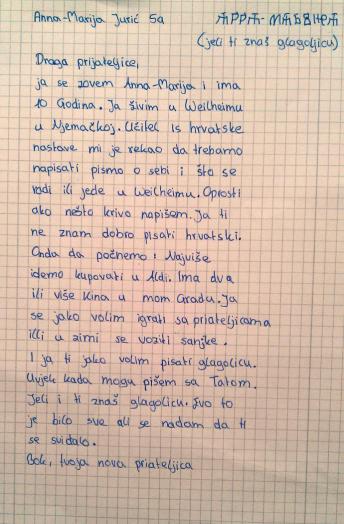 Anna-Marija Jurić 5a
(jeli ti znaš glagoljicu)
Draga prijateljice,
ja se zovem Anna-Marija i ima
10 Godina. Ja živim u Weilheimu
u Njemačkoj. Učitel is hrvatske
nastave mi je rekao da trebamo
napisati pismo o sebi i šta se
radi ili jede u Weilheimu. Oprosti
ako nešto krivo napišem. Ja ti
ne znam dobro pisati hrvatski.
Onda da počnemo: Najviše
idemo kupovati u Aldi. Ima dva
ili više Kina u mom Gradu. Ja
se jako volim igrati sa priateljicama
illi u zimi se voziti sanjke.
I ja ti jako volim pisati glagolicu.
Uvjek kada mogu pišem sa Tatom.
Jeli i ti znaš glagolicu. Evo to
je bilo sve ali se nadam da ti
se sviđalo.
Bok, tvoja nova priateljica